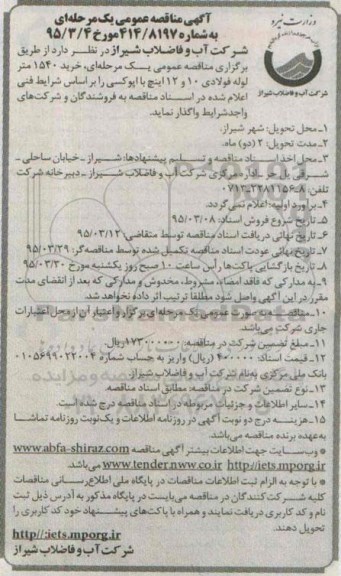 آگهی مناقصه عمومی یک مرحله‌ای
به شماره ۴۱۴/۸۱۹۷ مورخ ۹۵/۳/۴
وزارت نیرو
شرکت آب و فاضلاب شیراز
شرکت آب و فاضلاب شیراز در نظر دارد از طریق
برگزاری مناقصه عمومی یک مرحله‌ای، خرید ۱۵۴۰ متر
لوله فولادی ۱۰ و ۱۲ اینچ با اپوکسی را بر اساس شرایط فنی
اعلام شده در اسناد مناقصه به فروشندگان و شرکت‌های
واجد شرایط واگذار نماید.
۱ـ محل تحویل: شهر شیراز.
۲ـ مدت تحویل: ۲ (دو) ماه.
۳ـ محل اخذ اسناد مناقصه و تسلیم پیشنهادها: شیراز ـ خیابان ساحلی ـ
شرقی پل حر ـ اداره مرکزی شرکت آب و فاضلاب شیراز ـ دبیرخانه شرکت
تلفن: ۸-۳۲۲۸۱۱۵۶-۰۷۱
۴ـ برآورد اولیه: اعلام نمی گردد.
۵ـ تاریخ شروع فروش اسناد: ۹۵/۰۳/۰۸
۶ـ تاریخ نهائی دریافت اسناد مناقصه توسط متقاضی: ۹۵/۰۳/۱۲
۷ـ تاریخ نهائی عودت اسناد مناقصه تکمیل شده توسط مناقصه‌گر: ۹۵/۰۳/۲۹
۸ـ تاریخ بازگشایی پاکت‌ها رأس ساعت ۱۰ صبح روز یکشنبه مورخ ۹۵/۰۳/۳۰
۹ـ به مدارکی که فاقد امضاء، مشروط، مخدوش و مدارکی که بعد از انقضای مدت
مقرر در این آگهی واصل شود مطلقا ترتیب اثر داده نخواهد شد.
۱۰ـ مناقصه به صورت عمومی یک مرحله‌ای برگزار و اعتبار آن از محل اعتبارات
جاری شرکت می‌باشد.
۱۱ـ مبلغ تضمین شرکت در مناقصه: ریال
۱۲ـ قیمت اسناد: (۴۰۰۰۰۰ ریال) واریز به حساب شماره ۰۱۰۵۶۹۹۰۲۲۰۰۴
بانک ملی مرکزی به‌نام شرکت آب و فاضلاب شیراز.
۱۳ـ نوع تضمین شرکت در مناقصه: مطابق اسناد مناقصه.
۱۴ـ سایر اطلاعات و جزئیات مربوطه در اسناد مناقصه درج شده است.
۱۵ـ هزینه درج دو نوبت آگهی در روزنامه اطلاعات و یک‌نوبت روزنامه تماشا
به عهده برنده مناقصه می‌باشد.
* وب سایت جهت اطلاعات بیشتر آگهی مناقصه www.abfa-shiraz.com
http://iets.mporg.ir www.tender.nww.co.ir می‌باشد.
* با توجه به الزام ثبت اطلاعات مناقصات در پایگاه ملی اطلاع‌رسانی مناقصات
کلیه شرکت کنندگان در مناقصه می‌بایست در پایگاه مذکور به آدرس ذیل ثبت
نام و کد کاربری دریافت نمایند و همراه با پاکت‌های پیشنهاد خود کد کاربری را
تحویل دهند.
http//:iets.mporg.ir
شرکت آب و فاضلاب شیراز